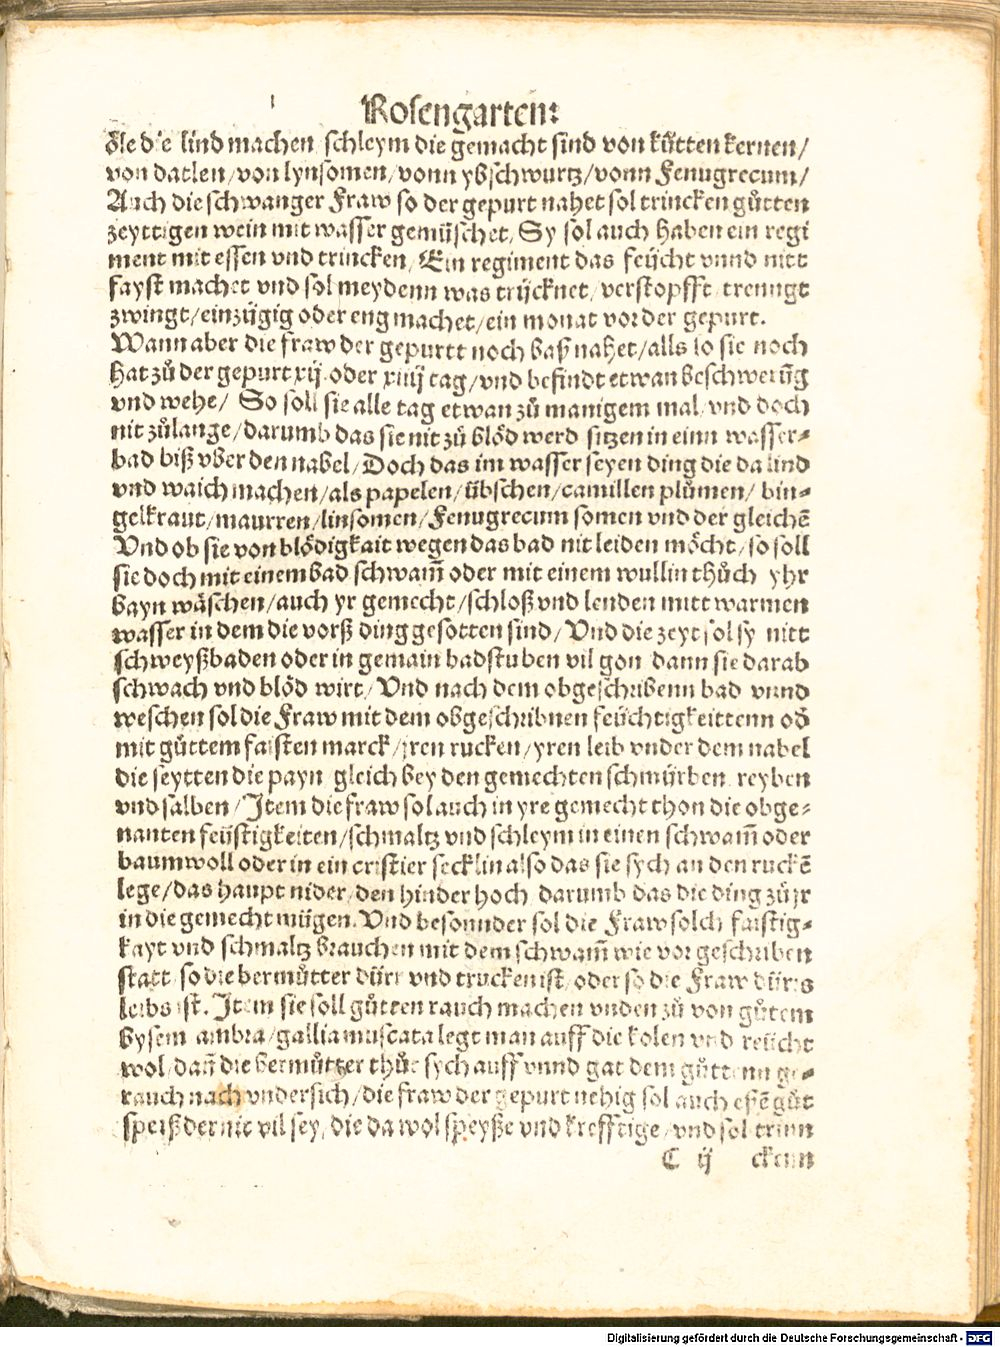 Rosengarten:
öle die lind machen schleym die gemacht sind von kůtten kernen/
von datlen/von lynsomen/vonn ybschwurtz/vonn Fenugrecum/
Auch die schwanger Fraw so der gepurt nahet sol trincken gůtten
zeyttigen wein mit wasser gemüschet/ Sy sol auch haben ein regi
ment mit essen vnd trincken/ Ein regiment das feücht vnnd nitt
fayst machet vnd sol meydenn was trücknet/verstopfft/trenngt
zwingt/einzügig oder eng machet/ein monat vor der gepurt.
Wann aber die fraw der gepurtt noch baß nahet/alls so sie noch
hat zů der gepurt xij oder xiiij tag/vnd befindt etwan beschwerũg
vnd wehe/ So soll sie alle tag etwan zů manigem mal/vnd doch
nit zůlange/darumb das sie nit zů blöd werd sitzen in einn wasser-
bad biß vber den nabel/Doch das im wasser seyen ding die da lind
vnd waich machen/als papelen/übschen/camillen plůmen/ bin-
gelkraut/maurren/linsomen/Fenugrecum somen vnd der gleichẽ
Vnd ob sie von blödigkait wegen das bad nit leiden möcht/so soll
sie doch mit einem bad schwam̃ oder mit einem wullin thůch yhr
bayn wäschen/auch yr gemecht/schloß vnd lenden mitt warmen
wasser in dem die vorß ding gesotten sind/ Vnd die zeyt sol sy nitt
schweyßbaden oder in gemain badstuben vil gon dann sie darab
schwach vnd blöd wirt/ Vnd nach dem obgeschribenn bad vnnd
weschen sol die Fraw mit dem obgeschribnen feüchtigkeittenn od̃
mit gůttem faisten marck/jren rucken/yren leib vnder dem nabel
die seytten die payn gleich bey den gemechten schmürben reyben
vnd salben/Item die fraw sol auch in yre gemecht thon die obge-
nanten feüstigkeiten/schmaltz vnd schleym in einen schwam̃ oder
baumwoll oder in ein cristier secklin also das sie sych an den ruckẽ
lege/das haupt nider/den hinder hoch darumb das die ding zů jr
in die gemecht mügen. Vnd besonnder sol die Fraw solch faistig-
kayt vnd schmaltz brauchen mit dem schwam̃ wie vor geschriben
statt so die bermůtter dürr vnd trucken ist/oder so die Fraw dürrs
leibs ist. Item sie soll gůtten rauch machen vnden zů von gůtem
bysem ambra/gallia muscata legt man auff die kolen vnd reücht
wol/dañ die bermůtter thůt sych auff vnnd gat dem gůttenn ge-
rauch nach vndersich/die fraw der gepurt nehig sol auch essẽ gůt
speiß der nit vil sey/die da wol speyße vnd krefftige/vnd sol trinn
C ij ckenn
Digitalisierung gefördert durch die Deutsche Forschungsgemeinschaft - DFG